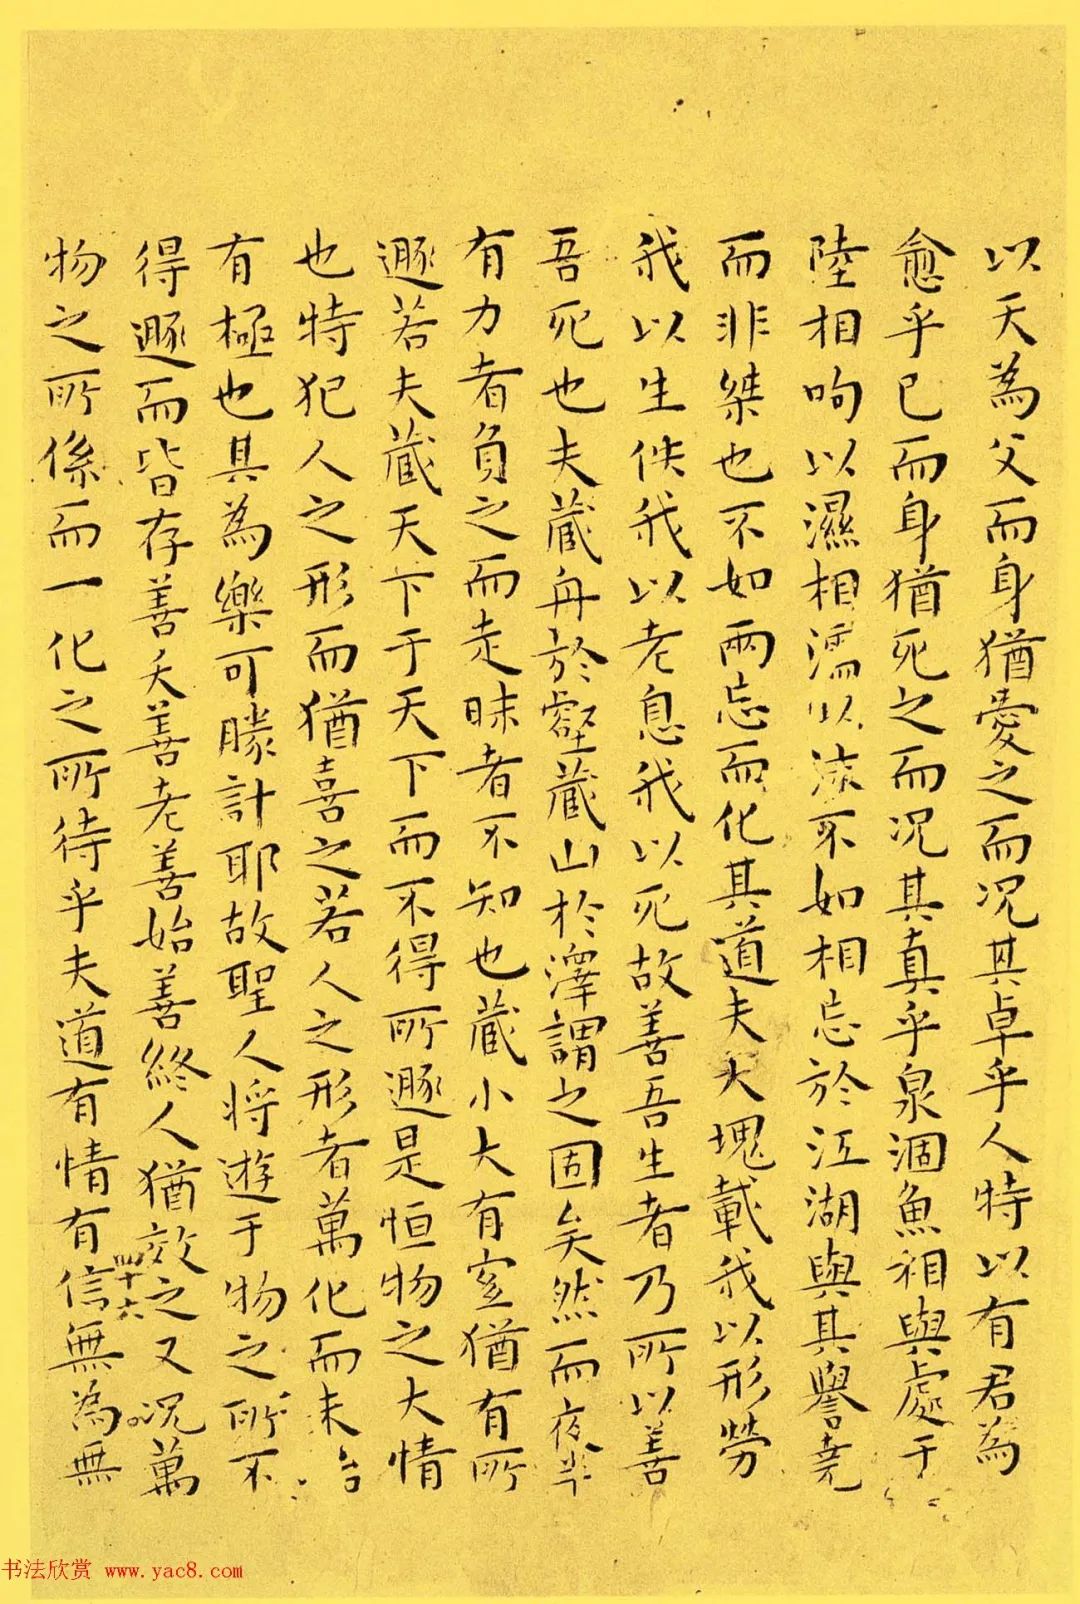 以天為父而身猶愛之而况其卓乎人特以有君為
愈乎已而身猶死之而况其真乎泉涸魚相與處于
陸相呴以濕相濡以沫不如相忘於江湖與其譽堯
而非桀也不如兩忘而化其道夫大塊載我以形勞
我以生佚我以老息我以死故善吾生者乃所以善
吾死也夫藏舟於壑藏山於澤謂之固矣然而夜半
有力者負之而走昧者不知也藏小大有宜猶有所
遯若夫藏天下于天下而不得所遯是恒物之大情
也特犯人之形而猶喜之若人之形者萬化而未始
有極也其為樂可勝計耶故聖人将遊于物之所不
得遯而皆存善夭善老善始善終人猶效之又况萬
物之所係而一化之所待乎夫道有情有信無為無
四十六
书法欣赏 www.yac8.com